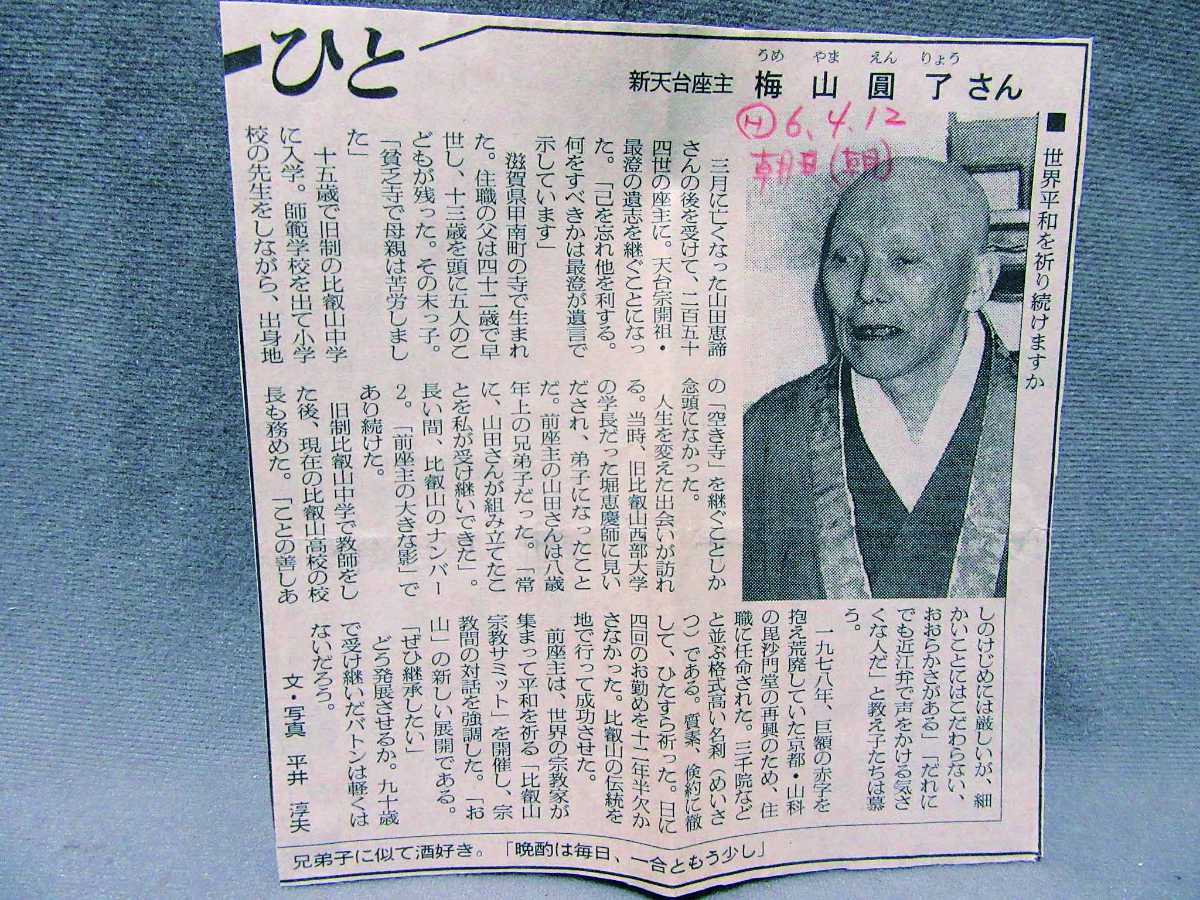 ひと
うめ やま えん りょう
新天台座主 梅山圓了さん
Ⓗ6.4.12
朝日(朝)
■世界平和を祈り続けますか
三月に亡くなった山田恵諦
さんの後を受けて、二百五十
四世の座主に。天台宗開祖・
最澄の遺志を継ぐことになっ
た。「己を忘れ他を利する。
何をすべきかは最澄が遺言で
示しています」
滋賀県甲南町の寺で生まれ
た。住職の父は四十二歳で早
世し、十三歳を頭に五人のこ
どもが残った。その末っ子。
「貧乏寺で母親は苦労しまし
た」
十五歳で旧制の比叡山中学
に入学。師範学校を出て小学
校の先生をしながら、出身地
の「空き寺」を継ぐことしか
念頭になかった。
人生を変えた出会いが訪れ
る。当時、旧比叡山西部大学
の学長だった堀恵慶師に見い
だされ、弟子になったこと
だ。前座主の山田さんは八歳
年上の兄弟子だった。「常
に、山田さんが組み立てたこ
とを私が受け継いできた」。
長い間、比叡山のナンバー
2。「前座主の大きな影」で
あり続けた。
旧制比叡山中学で教師をし
た後、現在の比叡山高校の校
長も務めた。「ことの善しあ
しのけじめには厳しいが、細
かいことにはこだわらない、
おおらかさがある」「だれに
でも近江弁で声をかける気さ
くな人だ」と教え子たちは慕
う。
一九七八年、巨額の赤字を
抱え荒廃していた京都・山科
の毘沙門堂の再興のため、住
職に任命された。三千院など
と並ぶ格式高い名刹(めいさ
つ)である。質素、倹約に徹
して、ひたすら祈った。日に
四回のお勤めを十二年半欠か
さなかった。比叡山の伝統を
地で行って成功させた。
前座主は、世界の宗教家が
集まって平和を祈る「比叡山
宗教サミット」を開催し、宗
教間の対話を強調した。「お
山」の新しい展開である。
「ぜひ継承したい」
どう発展させるか。九十歳
で受け継いだバトンは軽くは
ないだろう。
文・写真 平井 淳夫
兄弟子に似て酒好き。「晩酌は毎日、一合ともう少し」